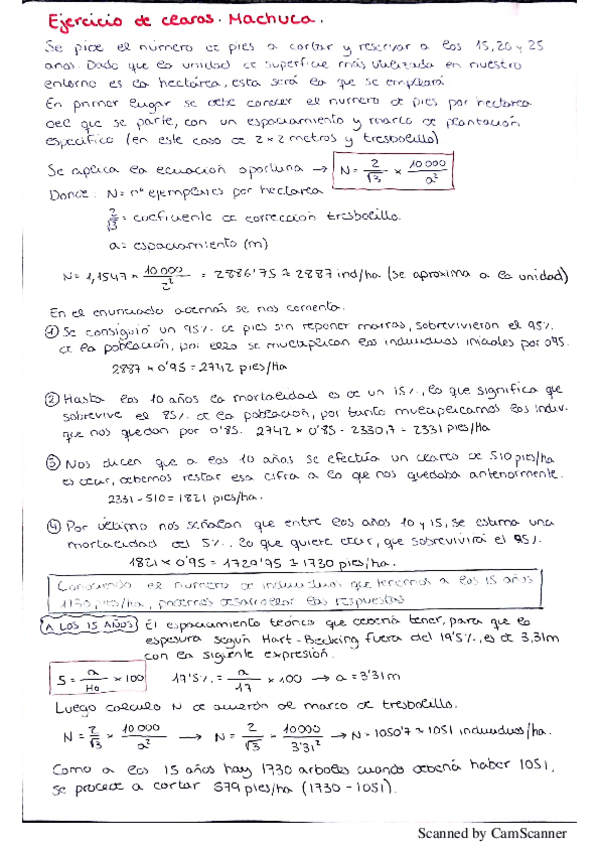 Ejercicio de claras. Machuca.
Se pide el número de pies a cortar y reservar a los 15, 20 y 25
años. Dado que la unidad de superficie más utilizada en nuestro
entorno es la hectárea, esta será la que se empleará
En primer lugar se debe conocer el numero de pies por hectarea
del que se parte, con un espaciamiento y marco de plantación
específico (en este caso de 2x2 metros y tresbolillo)
Se aplica la ecuación oportuna → N = 2/√3 × 10000/a²
Donde: N = nº ejemplares por hectarea
2/√3 = coeficiente de corrección tresbolillo.
a = espaciamiento (m)
N = 1,1547 × 10000/2² = 2886'75 ≈ 2887 ind/ha (se aproxima a la unidad)
En el enunciado además se nos comenta.
① Se consiguió un 95% de pies sin reponer marras, sobrevivieron el 95%
de la población, por ello se multiplican los individuos iniciales por 0'95.
2887 × 0'95 = 2742 pies/Ha
② Hasta los 10 años la mortalidad es de un 15%, lo que significa que
sobrevive el 85% de la población, por tanto multiplicamos los indiv.
que nos quedan por 0'85. 2742 × 0'85 = 2330,7 = 2331 pies/Ha
③ Nos dicen que a los 10 años se efectúa un clareo de 510 pies/ha
es decir, debemos restar esa cifra a lo que nos quedaba anteriormente.
2331 - 510 = 1821 pies/ha.
④ Por último nos señalan que entre los años 10 y 15, se estima una
mortalidad del 5%. lo que quiere decir, que sobrevivirá el 95%.
1821 × 0'95 = 1729'95 ≈ 1730 pies/ha.
Conociendo el numero de individuos que tenemos a los 15 años
pies/ha, podemos desarrollar las respuestas
A LOS 15 AÑOS El espaciamiento teórico que debería tener, para que la
espesura según Hart-Becking fuera del 19'5%, es de 3,31m
con la siguiente expresión.
S = a/Ho × 100 19'5% = a/17 × 100 → a = 3'31m
Luego calculo N de acuerdo al marco de tresbolillo.
N = 2/√3 × 10000/a² → N = 2/√3 · 10000/3'31² → N = 1050'7 ≈ 1051 individuos/ha.
Como a los 15 años hay 1730 arboles cuando debería haber 1051,
se procede a cortar 679 pies/ha (1730 - 1051).
Scanned by CamScanner